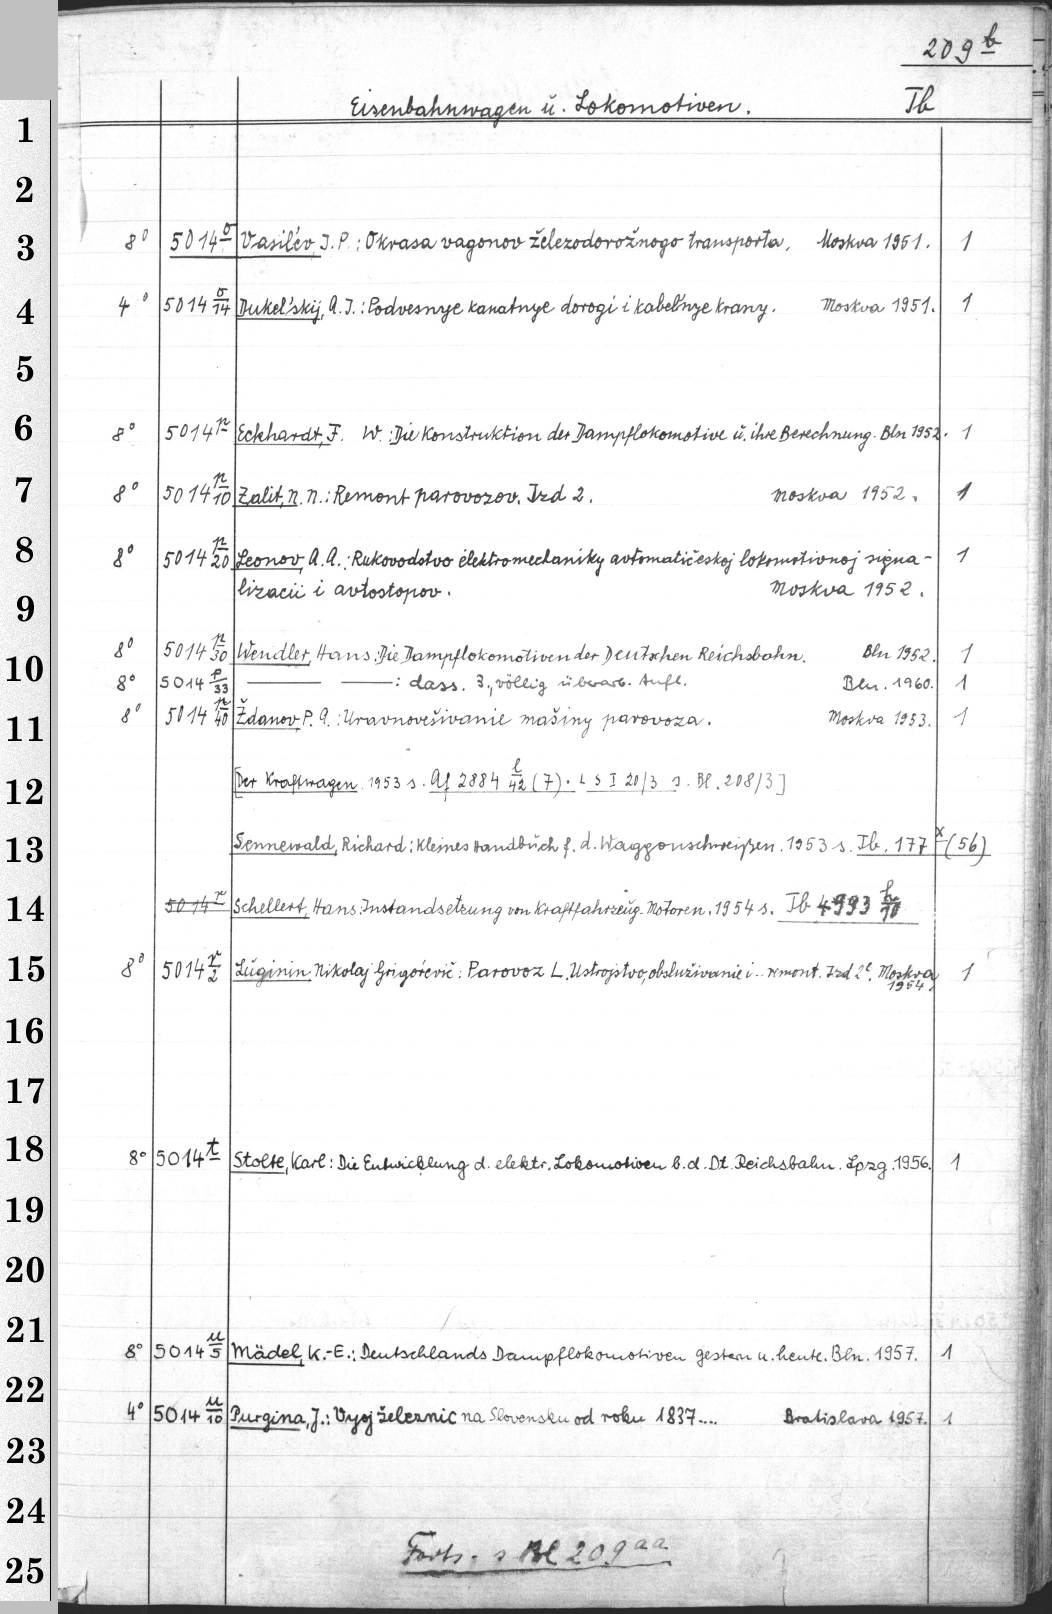 209 b
Eisenbahnwagen u. Lokomotiven. Ib
1
2
3 8° 5014 o Vasil'ev J. P.: Okrasa vagonov železodorožnogo transporta, Moskva 1951. 1
4 4° 5014 o/14 Dukel'skij, A. J.: Podvesnye kanatnye dorogi i kabel'nye krany. Moskva 1951. 1
5
6 8° 5014 p Eckhardt, F. W.: Die Konstruktion der Dampflokomotive u. ihre Berechnung. Bln 1952. 1
7 8° 5014 p/10 Zalit, N. N.: Remont parovozov. Izd 2. Moskva 1952. 1
8 8° 5014 p/20 Leonov, A. A.: Rukovodstvo élektromechaniky avtomatičeskoj lokomotivnoj signa-
9 lizacii i avtostopov. Moskva 1952.
8° 5014 p/30 Wendler, Hans: Die Dampflokomotiven der Deutschen Reichsbahn. Bln 1952. 1
10 8° 5014 p/33 —— ——: dass. 3., völlig überarb. Aufl. Bln. 1960. 1
11 8° 5014 p/40 Ždanov P. A.: Uravnovešivanie mašiny parovoza. Moskva 1953. 1
12 [Der Kraftwagen 1953 s. Af 2884 l/42 (7). L S I 20/3 s. Bl. 208/3]
13 Sennewald, Richard: Kleines Handbuch f. d. Waggonschweißen. 1953 s. Ib. 177 x (56)
14 5014 r Schellert, Hans: Instandsetzung von Kraftfahrzeug-Motoren. 1954 s. Ib 4993 h/10
15 8° 5014 r/2 Luginin Nikolaj Grigor'evič: Parovoz L. Ustrojstvo, obsluživanie i .. remont. Izd 2e. Moskva 1
1954.
16
17
18 8° 5014 t Stolte, Karl: Die Entwicklung d. elektr. Lokomotiven b. d. Dt. Reichsbahn. Lpzg. 1956. 1
19
20
21 8° 5014 u/5 Mädel, K.-E.: Deutschlands Dampflokomotiven gestern u. heute. Bln. 1957. 1
22 4° 5014 u/10 Purgina, J.: Vyoj železnic na Slovensku od roku 1837.... Bratislava 1957. 1
23
24
Forts. s Bl 209 aa
25